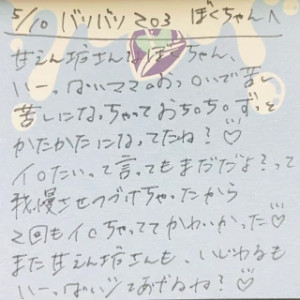 5/10 バリバリ 203 ぼくちゃんへ
甘えん坊さんなぼくちゃん、
いーっぱいママのおっ〇いで苦し
苦しになっちゃっておち〇ち〇ずっと
かたかたになってたね?♡
イ〇たいって言ってもまだだよ?って
我慢させつづけちゃったから
2回もイ〇ちゃっててかわいかった♡
また甘えん坊さんも、いじわるも
いーっぱいしてあげるね?♡